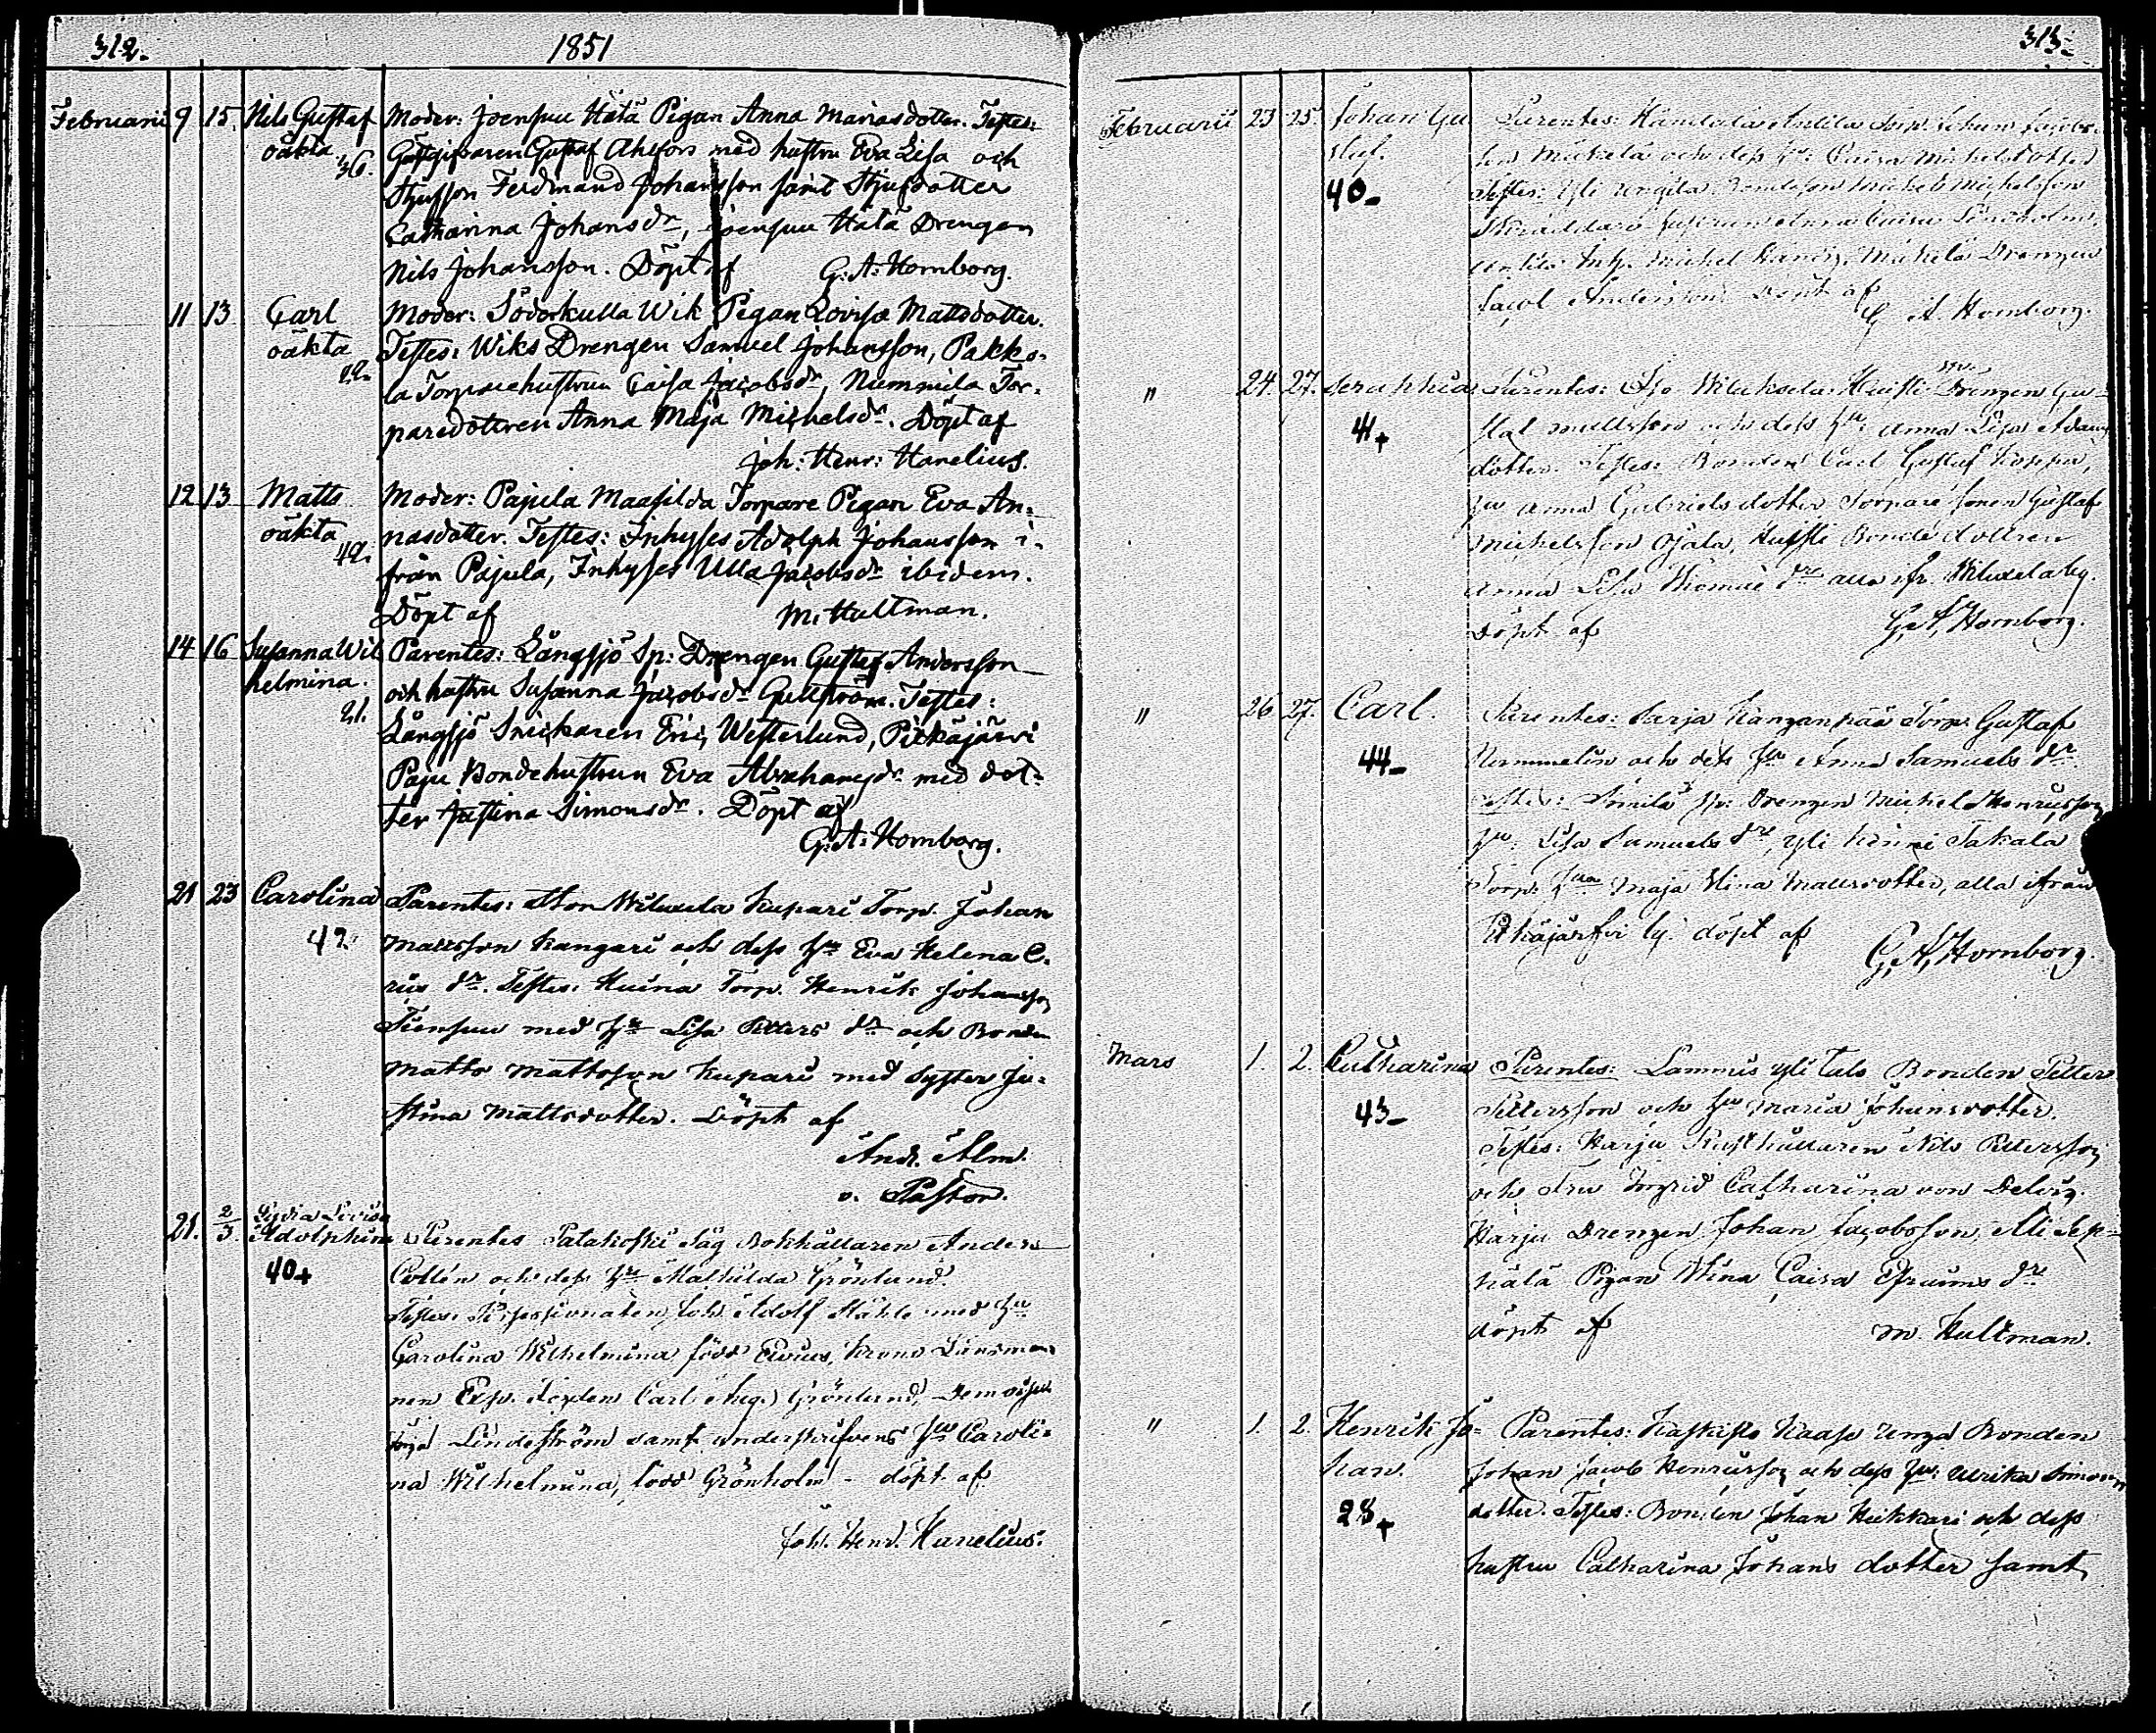 312.
1851
Februarii 9 15. Nils Gustaf Moder: Joensuu Hätä Pigan Anna Mariasdotter. Testes:
oäkta 36. Gästgifvaren Gustaf Ahlfors med hustru Eva Lisa och
Styfson Ferdinand Johansson samt Styfdotter
Catharina Johansdr, Joensuu Hätä Drengen
Nils Johansson. Döpt af G: A: Hornborg.
11 13 Carl Moder: Söderkulla Wik Pigan Lovisa Mattsdotter.
oäkta 22. Testes: Wiks Drengen Samuel Johansson, Pakko-
la Torparehustrun Caisa Jacobsdr, Nummila Tor-
paredottren Anna Maja Michelsdr. Döpt af
Joh: Henr: Hanelius.
12 13 Matts Moder: Pajula Maasilda Torpare Pigan Eva An-
oäkta 42. nasdotter. Testes: Inhyses Adolph Johansson i-
från Pajula, Inhyses Ulla Jacobsdr ibidem.
Döpt af M. Hultman.
14 16 Susanna Wil Parentes: Långsjö Sp: Drengen Gustaf Andersson
helmina. 21. och hustru Susanna Jacobsdr Gullström. Testes:
Långsjö Snickaren Eric Westerlund, Pitkäjärvi
Paju Bondehustrun Eva Abrahamsdr med dot-
ter Justina Simonsdr. Döpt af
G: A: Hornborg.
21 23 Carolina Parentes: Wiluxela Kupari Torp. Johan
42 Mattsson Kangari och dess hu Eva Helena E-
rics dr. Testes: Kuina Torp. Henrik Johansson
med hu Lisa Petters dr och Bonden
Matts Mattsson Kupari med syster Ju-
stina Mattsdotter. Döpt af
And. Alm.
v. Pastor.
21. 2/3 Lydia Lovisa
Adolphina Parentes Patakoski Såg Bokhållaren Anders
40+ Collén och dess hu Mathilda Grönlund.
Testes: Possessionaten Joh. Adolf Ståhle med hu
Carolina Wilhelmina född Elvius, Krono Länsman
nen Exp. Carl Aug. Grönlund,
Lindeström samt underskrifvens hu Caroli-
na Wilhelmina, född Grönholm - döpt af
Joh. Henr. Hanelius.
313.
Februarii 23 25. Johan Gu Parentes: Torp. Johan Jacobs-
staf. son Mickelä och dess hu: Caisa Michelsdotter
40- Testes: Yli Michel Michelsson
hustrun Anna Caisa
Inh. Michel Mickelä Drengen
Jacob Andersson. Döpt af
G. A. Hornborg.
" 24. 27. Serafina Parentes: Drengen Gu-
41+ staf Mattsson och dess hu: Anna Lisa Adams
dotter. Testes: Bonden Carl Gustaf
hu Anna Gabrielsdotter Torpare sonen Gustaf
Michelsson Ojala, Bonde dottren
Anna Lisa dr alla fr. Wiluxela by.
Döpt af G. A. Hornborg.
" 26 27. Carl. Parentes: Sarja Kanganpää Torp. Gustaf
44- Nummelin och dess hu Anna Samuels dr.
Testes: Simila Sp: Drengen Michel Henriksson
hu: Lisa Samuels dr, Yli Takala
Torp. hu Maja Stina Mattsdotter, alla ifrån
Pitkäjärfvi by. döpt af
G. A. Hornborg.
Mars 1. 2. Catharina Parentes: Lammis Yli Talo Bonden Petter
43- Pettersson och hu Maria Johansdotter.
Testes: Harju Rusthållaren Nils Pettersson
och Fru Ingrid Catharina von
Harju Drengen Johan Jacobsson, Ali Sep-
pälä Pigan Stina Caisa Efraims dr
döpt af M. Hultman.
" 1. 2. Henrik Jo- Parentes: Kaskisto Unga Bonden
han. Johan Jacob Henriksson och dess hu: Ulrika Simons
28+ dotter. Testes: Bonden Johan Heikkari och dess
hustru Catharina Johans dotter samt